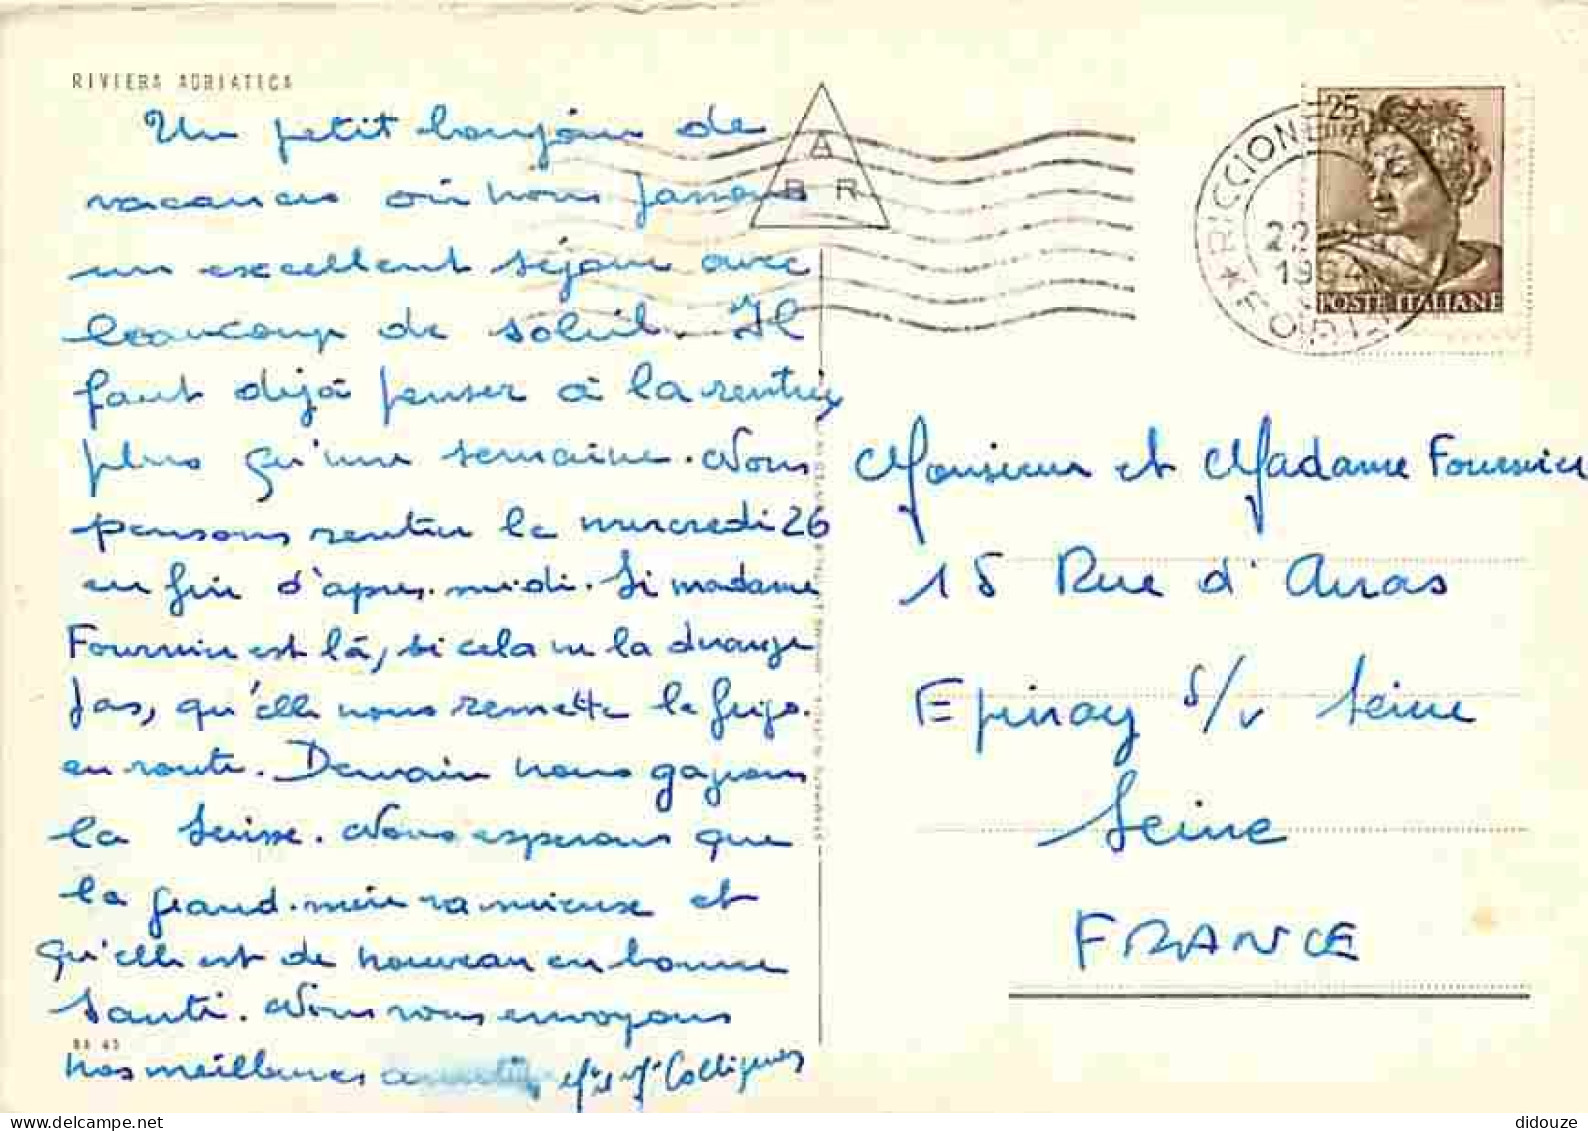 RIVIERA ADRIATICA
Un petit bonjour de
vacances où nous passons
un excellent séjour avec
beaucoup de soleil. Il
faut déjà penser à la rentrée
plus qu'une semaine. Nous
pensons rentrer le mercredi 26
en fin d'après-midi. Si madame
Fournier est là, si cela ne la dérange
pas, qu'elle nous remette le frigo.
en route. Demain nous gagnons
la Suisse. Nous esperons que
la grand-mère va mieux et
qu'elle est de nouveau en bonne
santé. Nous vous envoyons
nos meilleures
Collignon
A
B R
RICCIONE
FORLI
22
1964
25
LIRE
POSTE ITALIANE
Monsieur et Madame Fournier
15 Rue d'Arras
Epinay s/v Seine
Seine
FRANCE
didouze